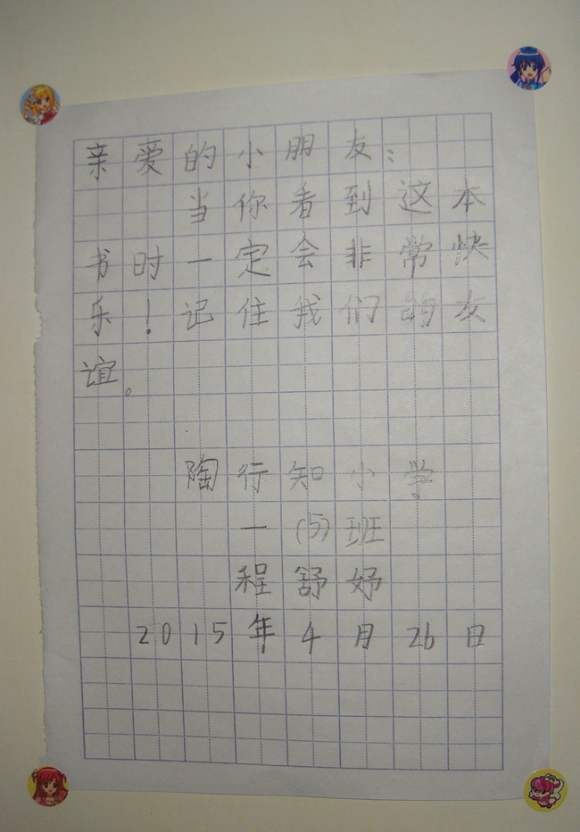 亲爱的小朋友：
当你看到这本
书时一定会非常快
乐！记住我们的友
谊。
陶行知小学
一(5)班
程舒妤
2015年4月26日